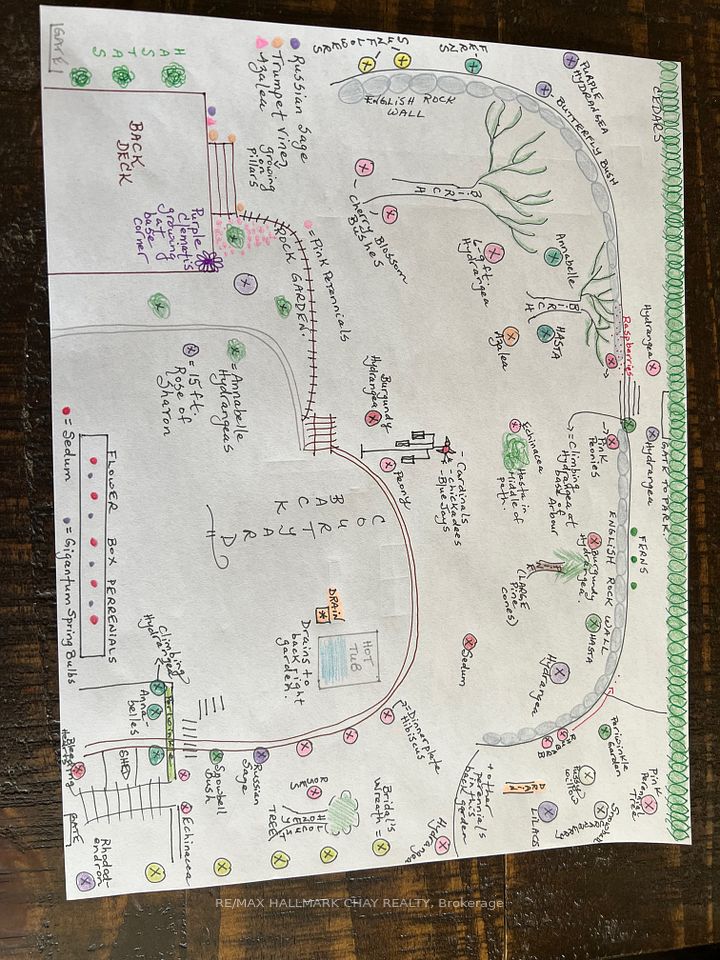 CEDARS
PURPLE
HYDRANGEA
BUTTERFLY BUSH
FERN
SUN
FLOWERS
ENGLISH ROCK
WALL
GATE
HASTAS
BACK
DECK
Russian Sage
Trumpet Vine
growing
on
Pillars
Azalea
Purple
Clematis
growing
at
base
corner
ROCK GARDEN.
Pink Perennials
Cherry Blossom
Bushes
BIRCH
6-9 ft.
Hydrangea
Annabelle
BIRCH
HASTA
Azalea
Raspberries
Hydrangea
Hydrangea
GATE TO PARK.
= Annabelle
Hydrangeas
= 15 ft.
Rose of
Sharon
Burgundy
Hydrangea
Peony
- Cardinals
- Chickadees
- Blue Jays
Echinacea
Hasta in
Middle of
path.
Pink
Peonies
= Climbing
Hydrangea at
base of
Arbour
FERNS
ENGLISH ROCK WALL
Burgundy
Hydrangea.
(LARGE
Pine
cones)
HASTA
Hydrangea
Sedum
COURTYARD
BACK
DRAIN
Drains to
back right
garden.
HOT
TUB
= Sedum
FLOWER BOX PERRENIALS
= Gigantum Spring Bulbs
Climbing
Hydrangea
Anna
belles
Periwinkle
SHED
Bleeding
Hearts
GATE
Rhodod
endron
Echinacea
Snowbell
Bush
Russian
Sage
= Dinnerplate
Hibiscus
ROSES
HONEYSUCKLE
TREE
Bridal's
Wreath =
Hydrangea
+ other
perennials
in this
back garden
DRAIN
LILACS
Pussy
Willow
Periwinkle
Garden
Pink
Peonies
Tree
RE/MAX HALLMARK CHAY REALTY, Brokerage